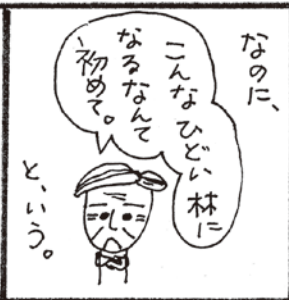 なのに、
こんなひどい林に
なるなんて
初めて。
と、いう。